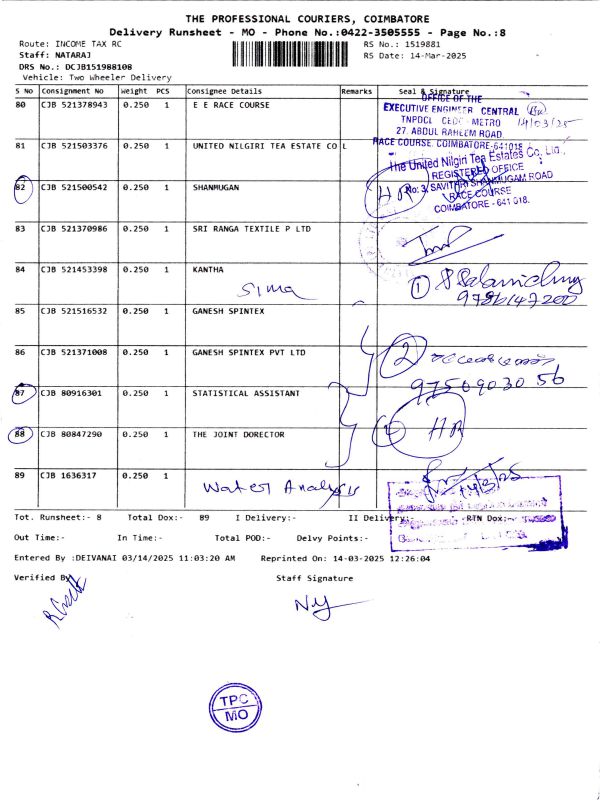 THE PROFESSIONAL COURIERS, COIMBATORE
Delivery Runsheet - MO - Phone No.:0422-3505555 - Page No.:8
Route: INCOME TAX RC RS No.: 1519881
Staff: NATARAJ RS Date: 14-Mar-2025
DRS No.: DCJB151988108
Vehicle: Two Wheeler Delivery
S No Consignment No Weight PCS Consignee Details Remarks Seal & Signature
80 CJB 521378943 0.250 1 E E RACE COURSE
OFFICE OF THE
EXECUTIVE ENGINEER CENTRAL
TNPDCL CEDC METRO 14/03/25
27. ABDUL RAHEEM ROAD
RACE COURSE. COIMBATORE-641018
81 CJB 521503376 0.250 1 UNITED NILGIRI TEA ESTATE CO L
The United Nilgiri Tea Estates Co. Ltd.,
REGISTERED OFFICE
No: 3, SAVITHRI SHANMUGAM ROAD
RACE COURSE
COIMBATORE - 641 018.
82 CJB 521500542 0.250 1 SHANMUGAN HR
83 CJB 521370986 0.250 1 SRI RANGA TEXTILE P LTD
84 CJB 521453398 0.250 1 KANTHA
Sima
1
9786147200
85 CJB 521516532 0.250 1 GANESH SPINTEX
86 CJB 521371008 0.250 1 GANESH SPINTEX PVT LTD
2
9756903056
87 CJB 80916301 0.250 1 STATISTICAL ASSISTANT
88 CJB 80847290 0.250 1 THE JOINT DORECTOR
HR
89 CJB 1636317 0.250 1
Water Analysis
14/3/25
Tot. Runsheet:- 8 Total Dox:- 89 I Delivery:- II Delivery:- RTN Dox:-
Out Time:- In Time:- Total POD:- Delvy Points:-
Entered By :DEIVANAI 03/14/2025 11:03:20 AM Reprinted On: 14-03-2025 12:26:04
Verified By Staff Signature
TPC
MO